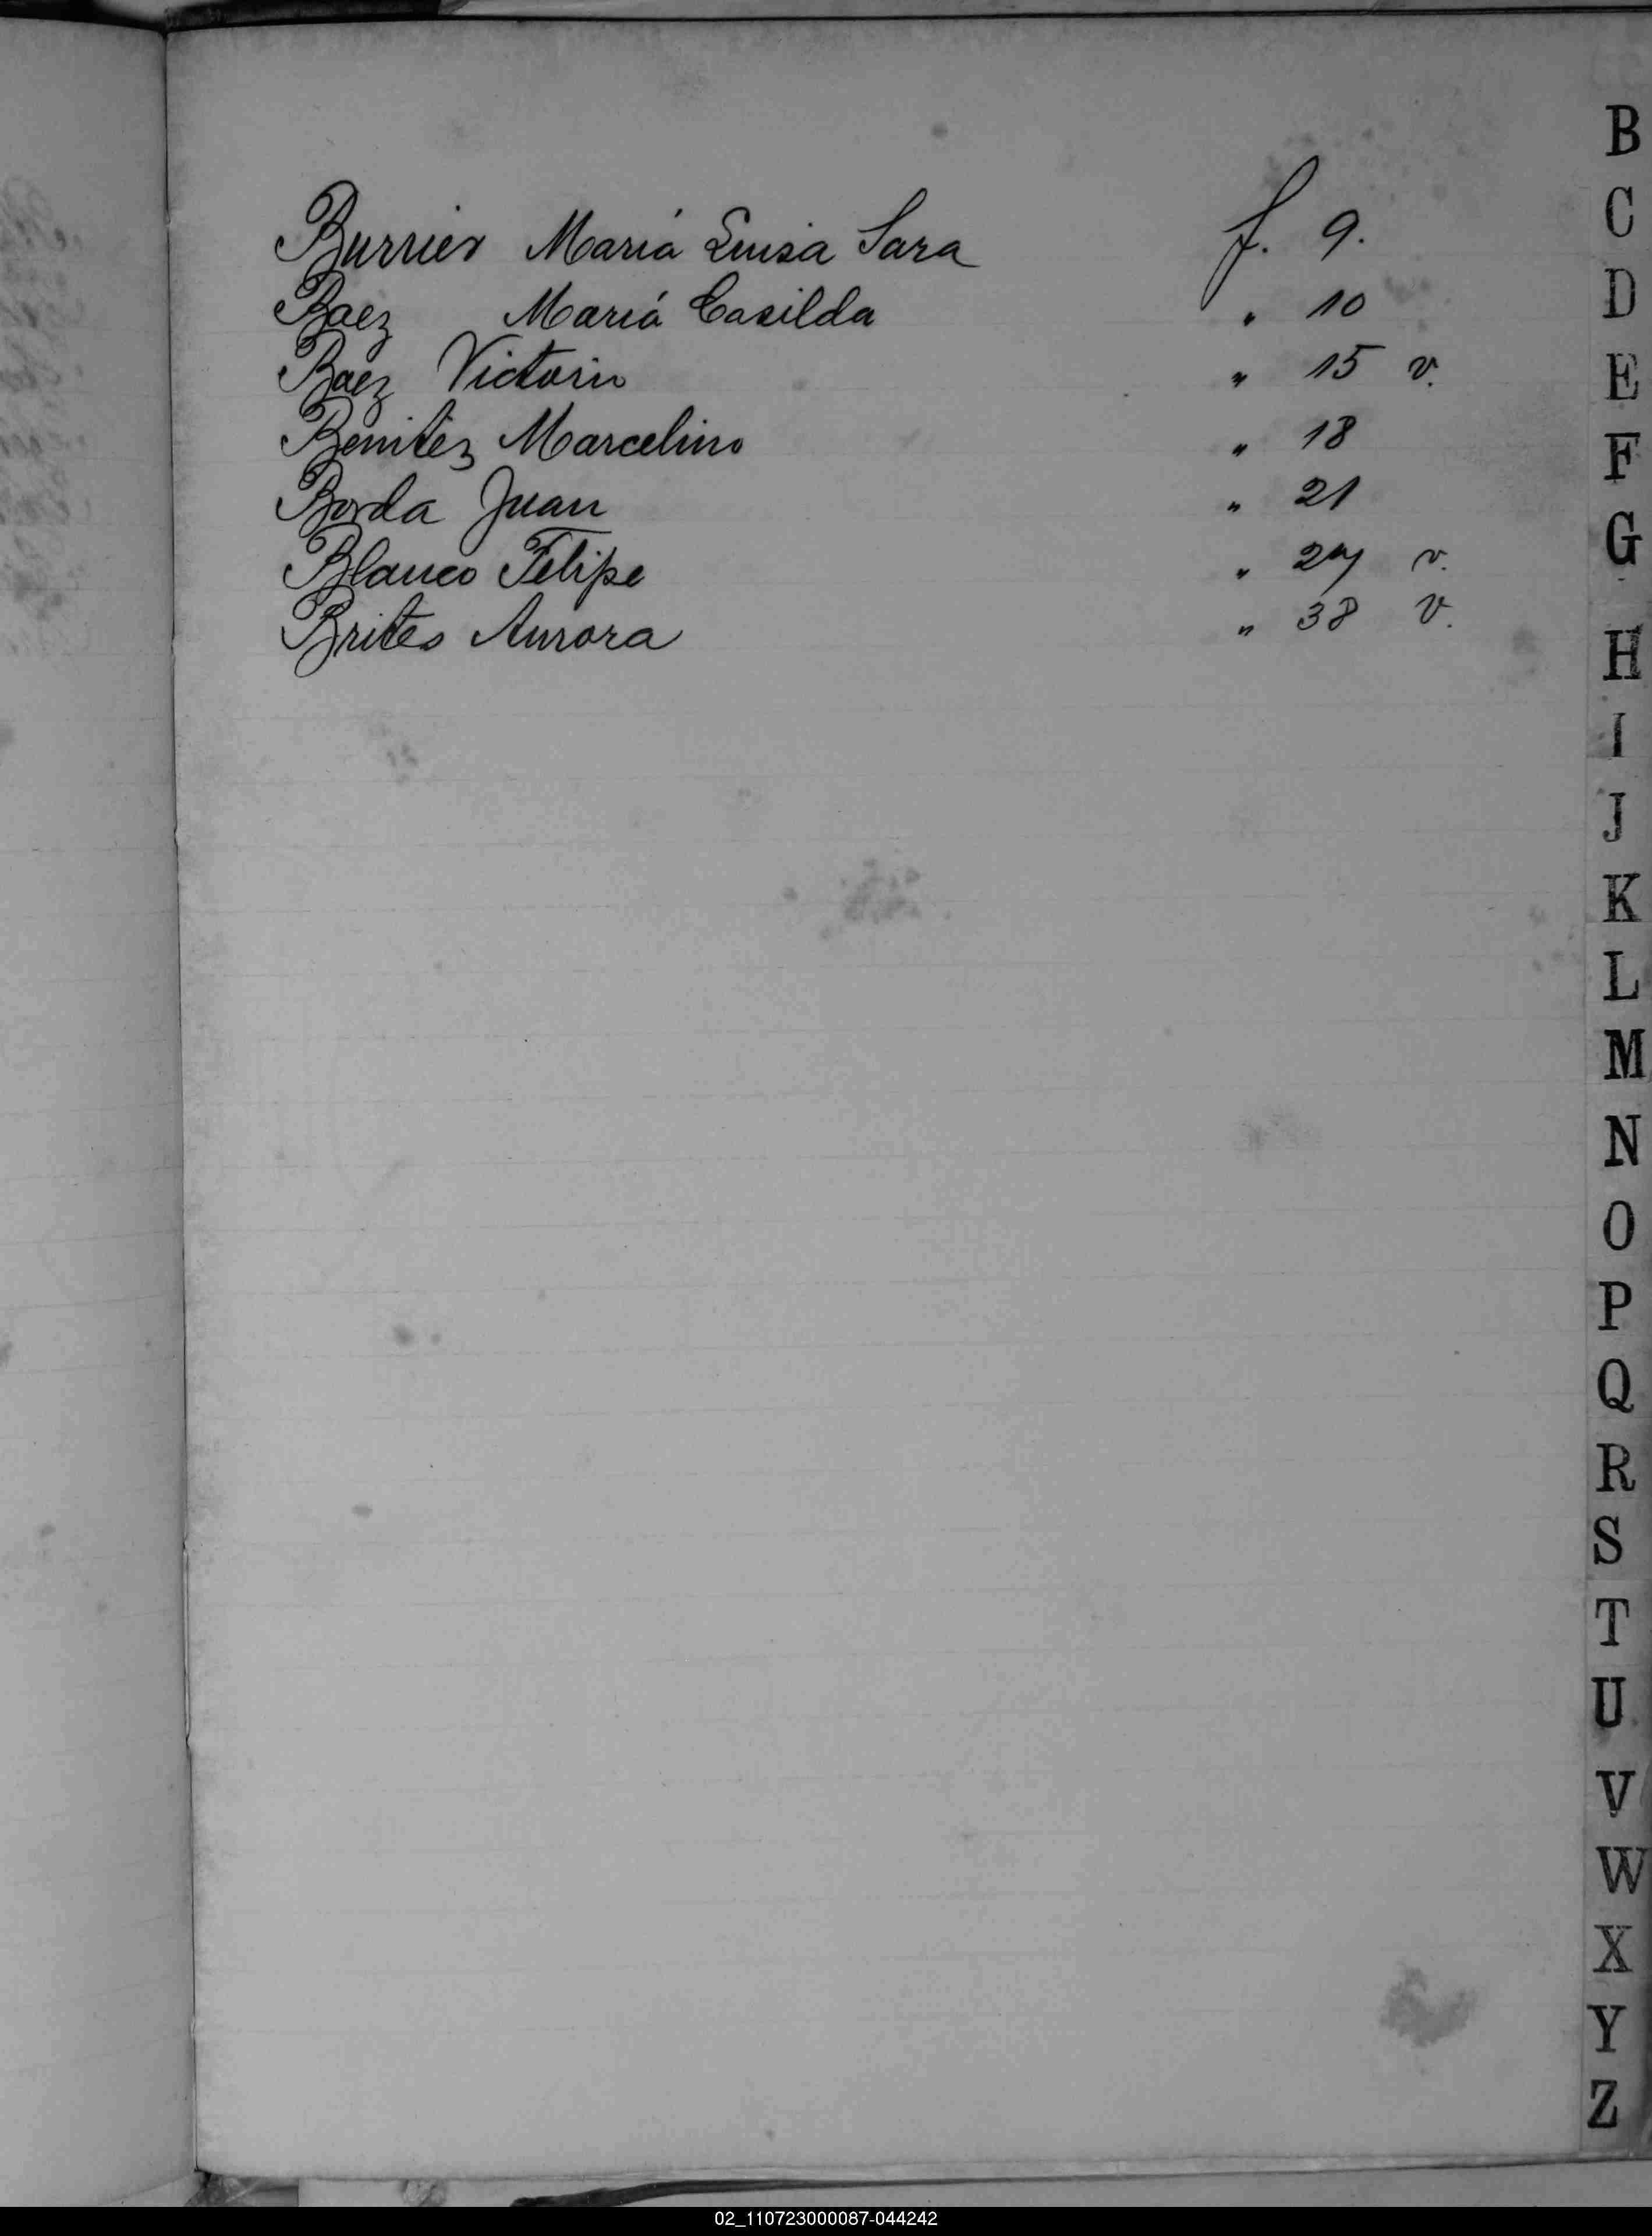 Burrier María Luisa Sara f. 9.
Baez María Casilda " 10
Baez Victorin " 15 v.
Benitez Marcelino " 18
Borda Juan " 21
Blanco Felipe " 27 v.
Brites Aurora " 38 v.
B
C
D
E
F
G
H
I
J
K
L
M
N
O
P
Q
R
S
T
U
V
W
X
Y
Z
02_110723000087-044242